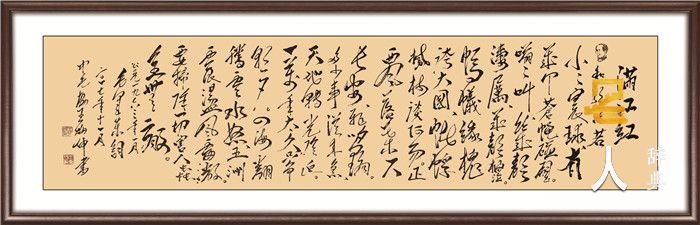 满江红
和
若
小小寰球有
几个苍蝇碰壁
嗡嗡叫几声
凄厉几声抽泣
蚂蚁缘槐
夸大国蚍蜉
撼树谈何易正
西风落叶下
长安飞鸣镝
多少事从来急
天地转光阴迫
一万年太久只争
朝夕四海翻
腾云水怒五洲
震荡风雷激
要扫除一切害人虫
全无敌
公元一九六三年
毛泽东词
年十一月
书
人
辞典